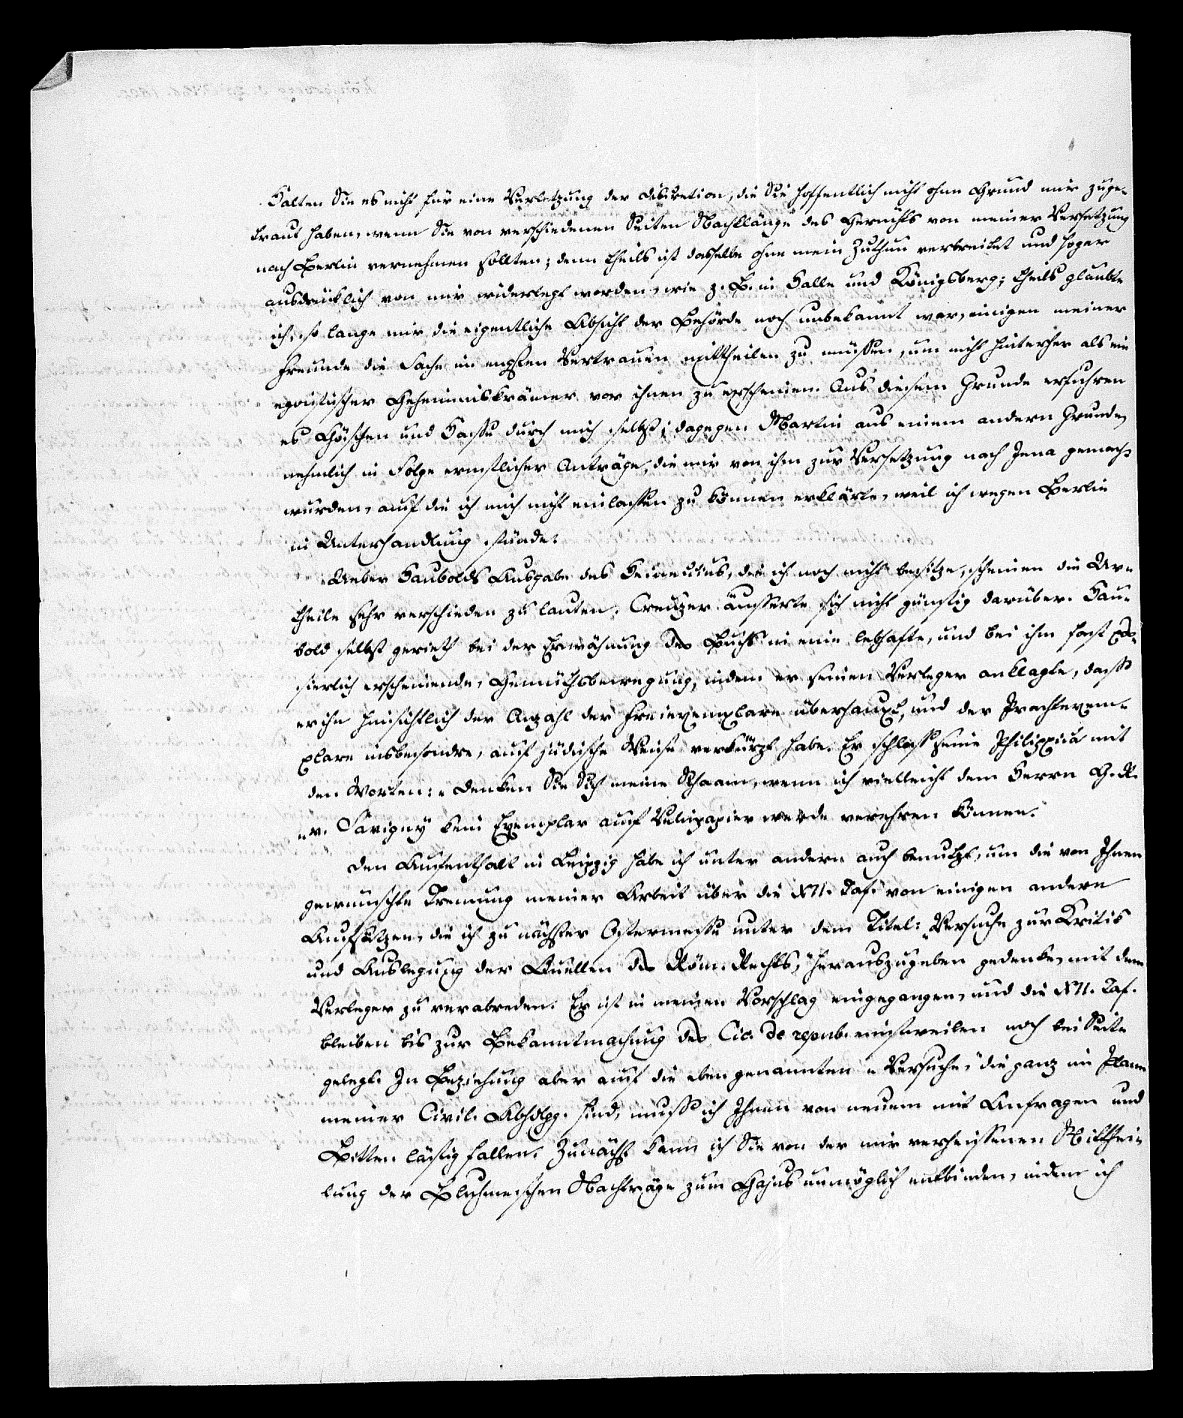 Halten Sie es nicht für eine Verletzung der Discretion, die Sie hoffentlich nicht ohne Grund mir zuge-
traut haben, wenn Sie von verschiedenen Seiten Nachklänge des Gerüchts von meiner Versetzung
nach Berlin vernehmen sollten; denn theils ist dasselbe ohne mein Zuthun verbreitet und sogar
ausdrücklich von mir widerlegt worden, wie z. B. in Halle und Königsberg; theils glaubte
ich, so lange mir die eigentliche Absicht der Behörde noch unbekannt war, einigen meiner
Freunde die Sache im engsten Vertrauen mittheilen zu müssen, um nicht hinterher als ein
egoistischer Geheimniskrämer vor ihnen zu erscheinen. Aus diesem Grunde erfuhren
es Göschen und Hasse durch mich selbst; dagegen Martin aus einem andern Grunde,
nehmlich in Folge ernstlicher Anträge, die mir von ihm zur Versetzung nach Jena gemacht
wurden, auf die ich mich nicht einlassen zu können erklärte, weil ich wegen Berlin
in Unterhandlung stünde.
Ueber Haubolds Ausgabe des Heineccius, die ich noch nicht besitze, scheinen die Ur-
theile sehr verschieden zu lauten. Creuzer äusserte sich nicht günstig darüber. Hau-
bold selbst gerieth bei der Erwähnung des Buchs in eine lebhafte, und bei ihm fast
sierlich erscheinende, Gemüthsbewegung, indem er seinen Verleger anklagte, dass
er ihn hinsichtlich der Anzahl der Freiexemplare überhaupt, und der Prachtexem-
plare insbesondre, auf jüdische Weise verkürzt habe. Er schloss seine Philippica mit
den Worten: "Denken Sie Sich meine Schaam, wenn ich vielleicht dem Herrn G. R.
"v. Savigny kein Exemplar auf Velinpapier werde verehren können."
Den Aufenthalt in Leipzig habe ich unter andern auch benutzt, um die von Ihnen
gewünschte Trennung meiner Arbeit über die XII. Taf. von einigen andern
Aufsätzen, die ich zu nächster Ostermesse unter dem Titel: "Versuche zur Kritik
und Auslegung der Quellen des Röm. Rechts," herauszugeben gedenke, mit dem
Verleger zu verabreden. Er ist in meinen Vorschlag eingegangen, und die XII. Taf.
bleiben bis zur Bekanntmachung des Cic. de republ. einstweilen noch bei Seite
gelegt. In Beziehung aber auf die eben genannten "Versuche," die ganz im Plane
meiner Civil. Abhdlgg. sind, muss ich Ihnen von neuem mit Anfragen und
Bitten lästig fallen. Zunächst kann ich Sie von der mir verheissenen Mitthei-
lung der Bluhmeschen Nachträge zum Gajus unmöglich entbinden, indem ich